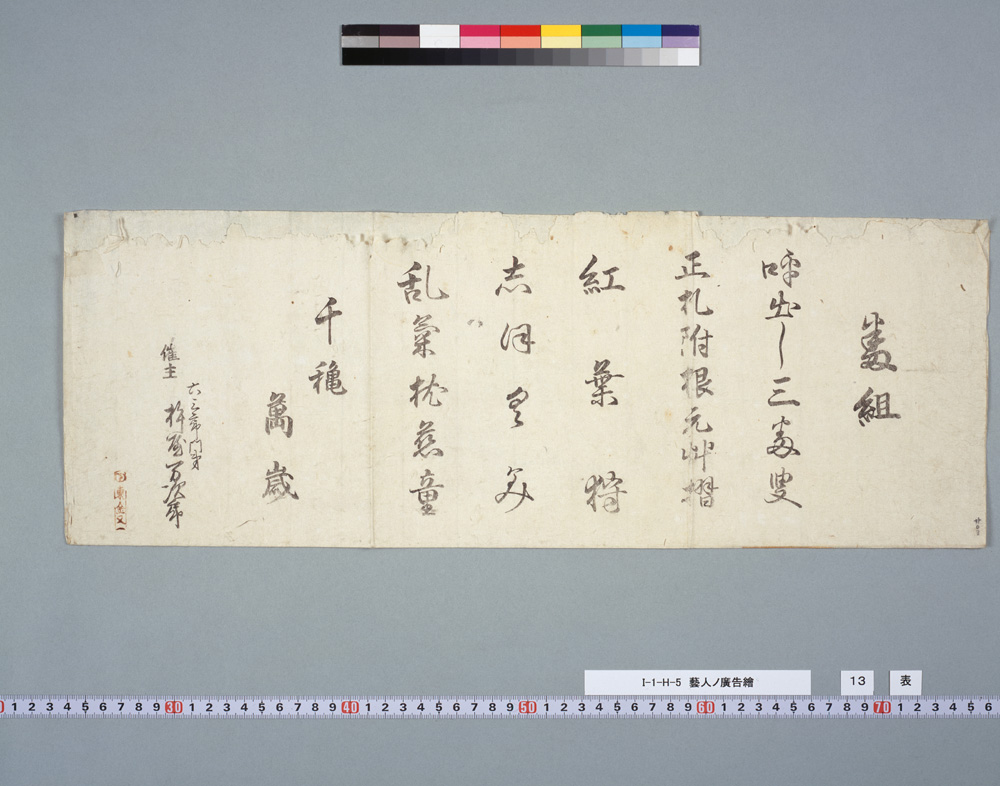 番組
呼出し三番叟
正札附根元艸摺
紅葉狩
志
乱菊枕慈童
千穐
萬歳
催主
六三郎門弟
杵屋
I-1-H-5 藝人ノ廣告繪
13
表
1 2 3 4 5 6 7 8 9 30 1 2 3 4 5 6 7 8 9 40 1 2 3 4 5 6 7 8 9 50 1 2 3 4 5 6 7 8 9 60 1 2 3 4 5 6 7 8 9 70 1 2 3 4 5 6